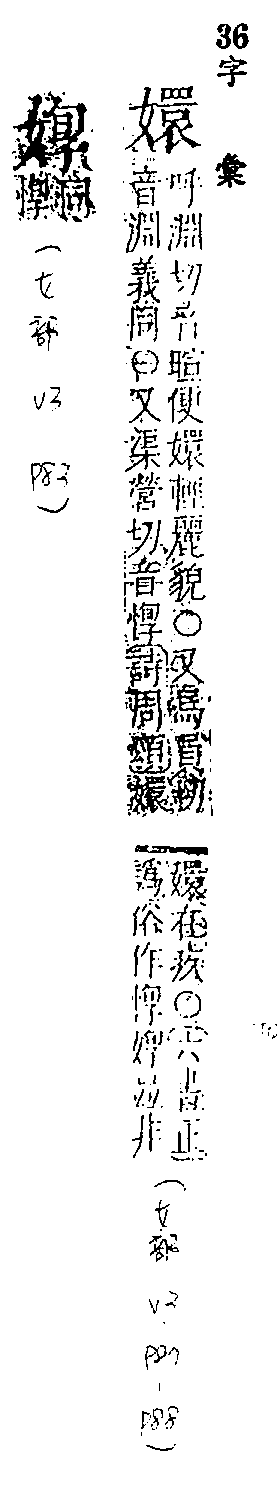 36字彙
嬛
呼淵切音暄便嬛輕麗貌〇又縈員切
音淵義同〇又渠營切音惸詩周頌嬛
嬛在疚〇六書正
譌俗作惸㛮並非
(女部 V3 P87-P88)
同
惸
(女部 V3 P83)